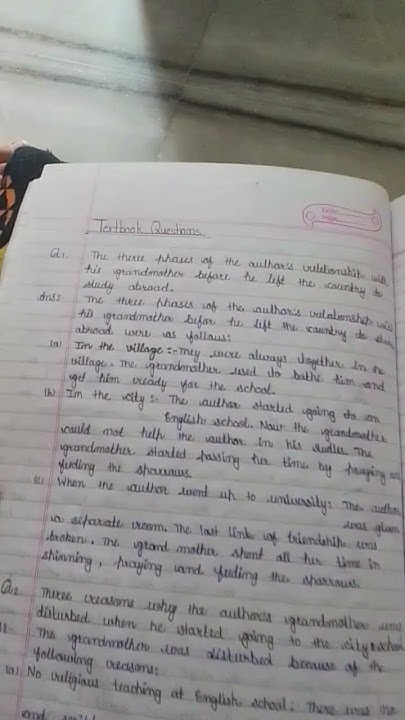 Textbook Questions.
Q1. The three phases of the author's relationship with
his grandmother before he left the country to
study abroad.
Ans: The three phases of the author's relationship with
his grandmother befor he left the country to
abroad were as follows:
(a) In the village :- They were always together in the
village. The grandmother used to bathe him and
get him ready for the school.
(b) In the city :- The author started going to an
English school. Now the grandmother
could not help the author in his studies. The
grandmother started passing her time by praying and
feeding the sparrows.
(c) When the author went up to university: The author
was given
a separate room. The last link of friendship was
broken. The grand mother spent all her time in
shinning, praying and feeding the sparrows.
Q2. Three reasons why the author's grandmother was
disturbed when he started going to the city school
The grandmother was disturbed because of the
following reasons:
(a) No religious teaching at English school: There was no
and